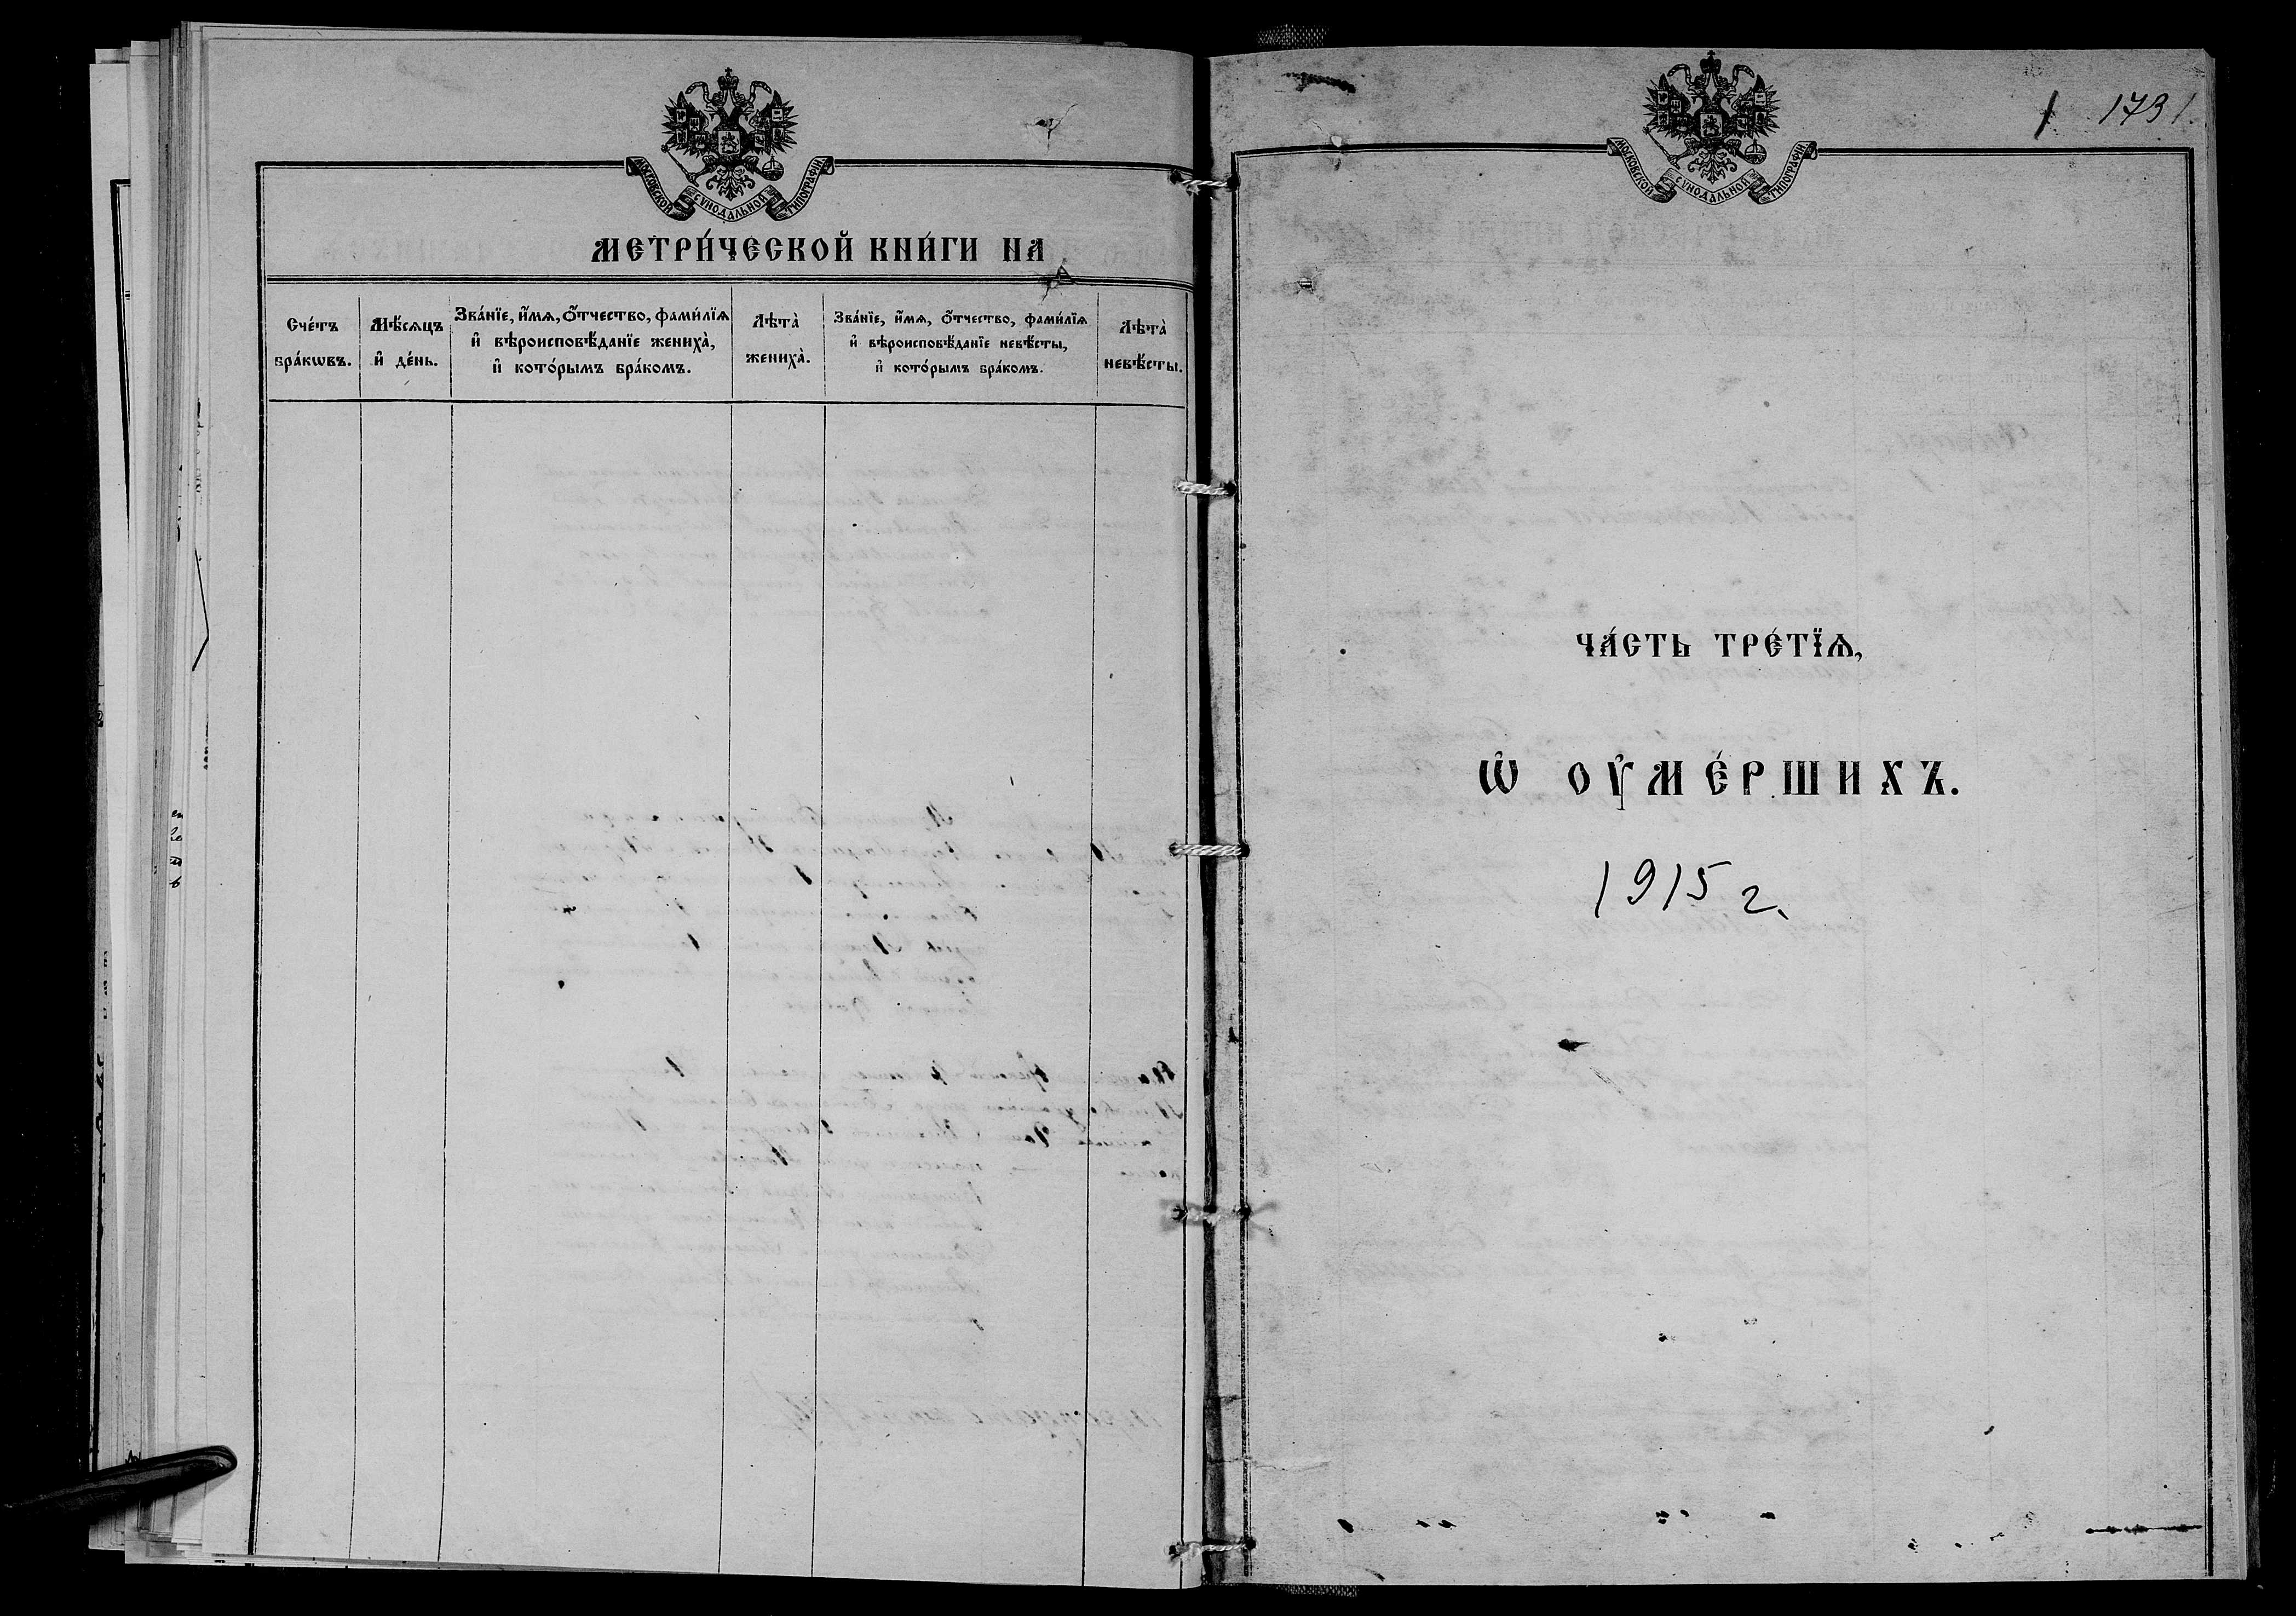 МОСКОВСКОЙ СѴНОДАЛЬНОЙ ТИПОГРАФІИ
МЕТРИ́ЧЕСКОЙ КНИ́ГИ НА
Сче́тъ бра́кѡвъ.
Мѣ́сѧцъ и҆ де́нь.
Зва́нїе, и҆́мѧ, о҆́тчество, фами́лїѧ
и҆ вѣроисповѣ́данїе жениха̀,
и҆ кото́рымъ бра́комъ.
Лѣта̀ жениха̀.
Зва́нїе, и҆́мѧ, о҆́тчество, фами́лїѧ
и҆ вѣроисповѣ́данїе невѣ́сты,
и҆ кото́рымъ бра́комъ.
Лѣта̀ невѣ́сты.
173
МОСКОВСКОЙ СѴНОДАЛЬНОЙ ТИПОГРАФІИ
ЧА́СТЬ ТРЕ́ТЇѦ,
Ѡ҆ ОУ҆МЕ́РШИХЪ.
1915 г.